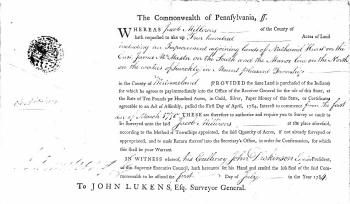 The Commonwealth of Pennsylvania, ss.
WHEREAS Jacob Millirons of the County of
hath requested to take up Four hundred Acres of Land
including an Improvement adjoining lands of Nathaniel Hurst on the
East James McMaster on the South and the Manor Line on the North
on the waters of Sewickly in Mount pleasant Township
in the County of Westmoreland (PROVIDED the same Land is purchased of the Indians)
for which he agrees to pay immediately into the Office of the Receiver General for the use of this State, at
the Rate of Ten Pounds per Hundred Acres, in Gold, Silver, Paper Money of this State, or Certificates,
agreeable to an Act of Assembly, passed the First Day of April, 1784, Interest to commence from the first
day of March 1775 THESE are therefore to authorize and require you to Survey or cause to
be Surveyed unto the said Jacob Millirons at the place aforesaid,
according to the Method of Townships appointed, the said Quantity of Acres, if not already Surveyed or
appropriated, and to make Return thereof into the Secretary's Office, in order for Confirmation, for which
this shall be your Warrant.
IN WITNESS whereof, his Excellency John Dickinson Esq. President,
of the Supreme Executive Council, hath hereunto set his Hand and caused the less Seal of the said Com-
monwealth to be affixed the first Day of July in the Year 1784
To JOHN LUKENS, Esq. Surveyor General.